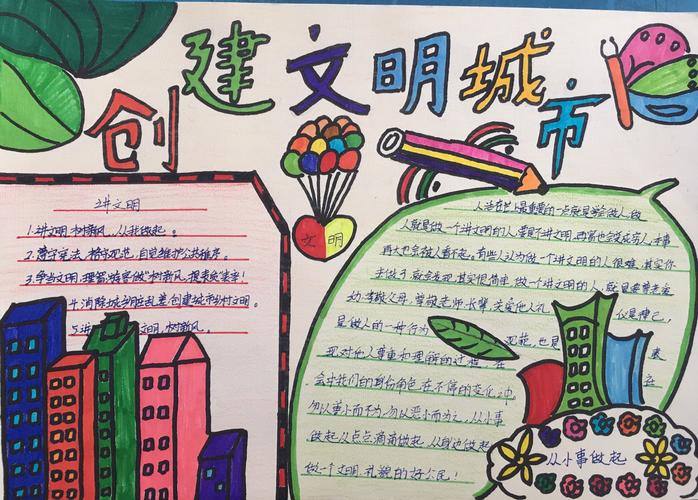 创建文明城市
讲文明
1.讲文明 树新风,从我做起。
2.遵守宪法、模守规范,自觉维护公共秩序。
3.争当文明、理智游客做"树新风、提表实走字!
4.消除城乡脏乱差,创建城市乡村文明。
5.讲 文明,树新风。
文明
人活在世上最重要的一点就是学会做人,做
人就是做一个讲文明的人,要是不讲文明,再富也会变成穷人,本事
再大也会被人看不起。有些人认为做一个讲文明的人很难,其实你
去做了,就会发现,其实很简单,做一个讲文明的人,就是要尊老爱
幼、孝敬父母、尊敬老师、长辈、关爱他人,礼 仪是律己,
是做人的一种行为 规范,也是 表
现对他人尊重和理解的过程,在 在
会中我们的身份角色在不停的变化,冲
勿以善小而不为,勿以恶小而为之,从小事
做起,从点点滴滴做起,从身边做起
做一个文明、礼貌的好公民!
从小事做起